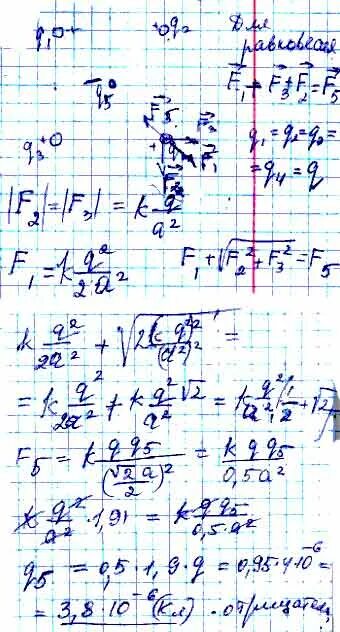 q₁ +
+ q₂
Для
равновесия
−q₅
F⃗₁ + F⃗₃ + F⃗₂ = F⃗₅
q₃ +
F⃗₅
F⃗₃
F⃗₁
F⃗₂
q₁ = q₂ = q₃ =
= q₄ = q
|F₂| = |F₃| = k q²/a²
F₁ = k q²/2a²
F₁ + √(F₂² + F₃²) = F₅
k q²/2a² + √(2(k q²)²/(a²)²) =
= k q²/2a² + k q²/a² √2 = k q²/a² (1/2 + √2)
F₅ = k q q₅/(√2 a/2)² = k q q₅/0,5a²
k q²/a² · 1,91 = k q q₅/0,5·a²
q₅ = 0,5 · 1,9 · q = 0,95 · 4 · 10⁻⁶ =
= 3,8 · 10⁻⁶ (Кл) · отрицател